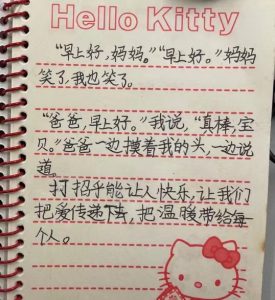 Hello Kitty
“早上好，妈妈。”“早上好。”妈妈
笑了，我也笑了。
“爸爸，早上好。”我说，“真棒，宝
贝。”爸爸一边摸着我的头，一边说
道
打招乎能让人快乐，让我们
把爱传递下去，把温暖带给每
个人。